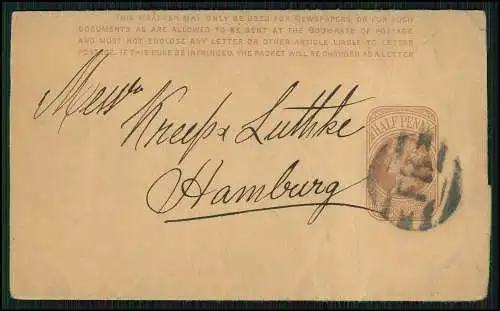 THIS WRAPPER MAY ONLY BE USED FOR NEWSPAPERS, OR FOR SUCH
DOCUMENTS AS ARE ALLOWED TO BE SENT AT THE BOOK-RATE OF POSTAGE
AND MUST NOT ENCLOSE ANY LETTER OR OTHER ARTICLE LIABLE TO LETTER
POSTAGE. IF THIS RULE BE INFRINGED, THE PACKET WILL BE CHARGED AS A LETTER
Messrs
Kreep & Luthke
Hamburg
HALF PENNY